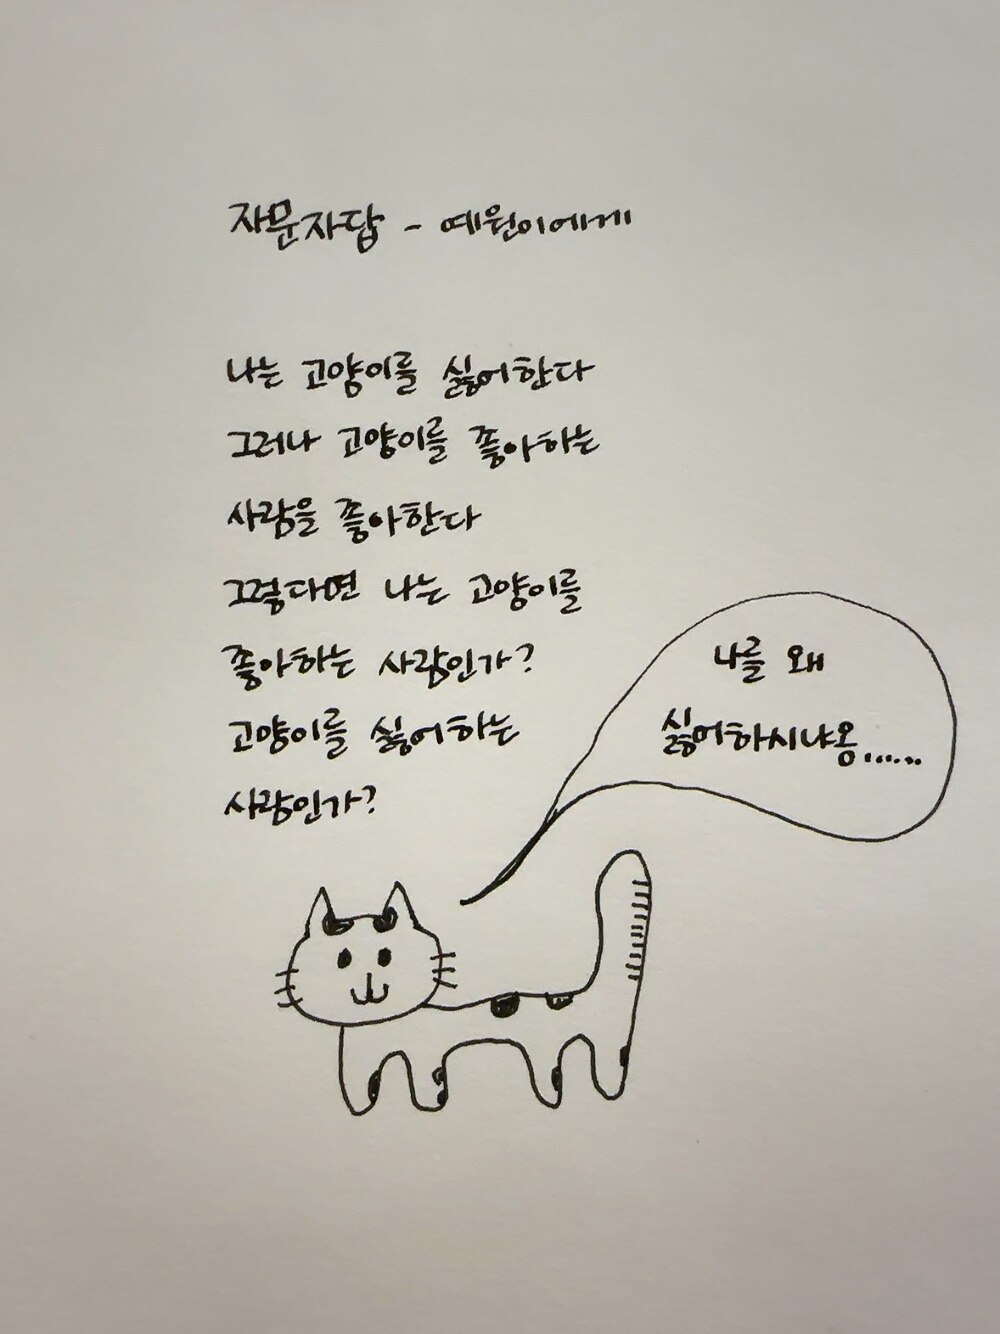 자문자답 - 예원이에게
나는 고양이를 싫어한다
그러나 고양이를 좋아하는
사람을 좋아한다
그렇다면 나는 고양이를
좋아하는 사람인가?
고양이를 싫어하는
사람인가?
나를 왜
싫어하시냐옹......